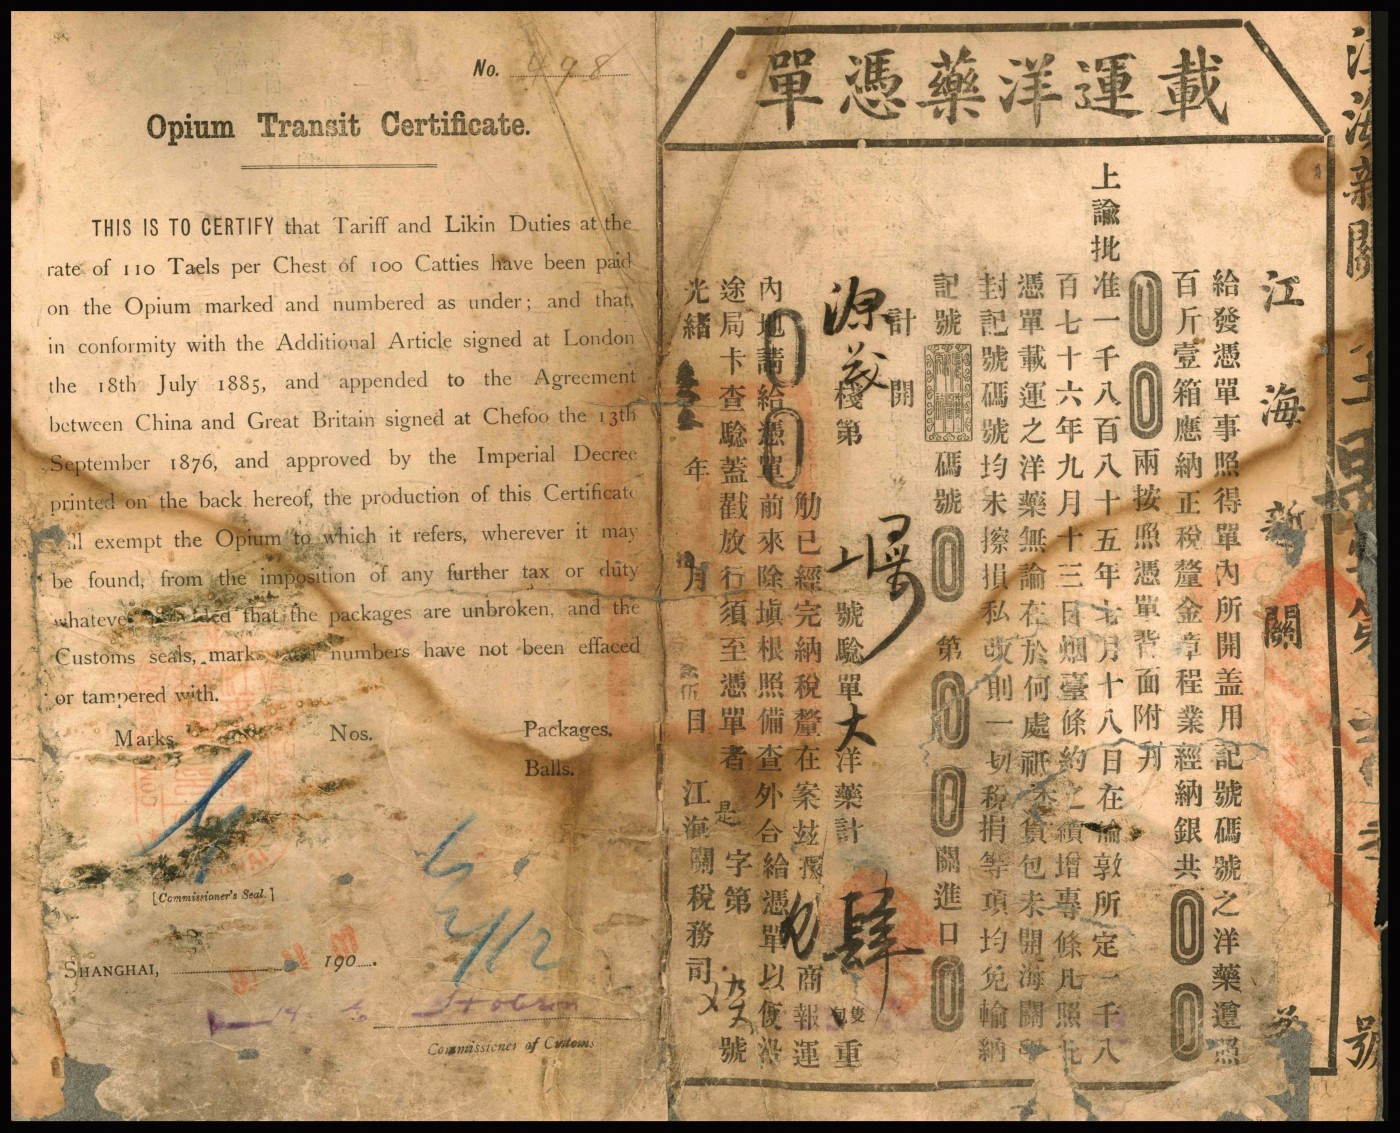 No. 498
Opium Transit Certificate.
THIS IS TO CERTIFY that Tariff and Likin Duties at the
rate of 110 Taels per Chest of 100 Catties have been paid
on the Opium marked and numbered as under; and that,
in conformity with the Additional Article signed at London
the 18th July 1885, and appended to the Agreement
between China and Great Britain signed at Chefoo the 13th
September 1876, and approved by the Imperial Decree
printed on the back hereof, the production of this Certificate
will exempt the Opium to which it refers, wherever it may
be found, from the imposition of any further tax or duty
whatever provided that the packages are unbroken, and the
Customs seals, marks and numbers have not been effaced
or tampered with.
Marks Nos. Packages.
Balls.
[Commissioner's Seal.]
SHANGHAI, 190 .
Commissioner of Customs
江海新關 號
載運洋藥憑單
江海新關
給發憑單事照得單內所開盖用記號碼號之洋藥遵照
百斤壹箱應納正稅釐金章程業經納銀共
兩按照憑單背面附刋
上諭批准一千八百八十五年七月十八日在倫敦所定一千八
百七十六年九月十三日烟臺條約之續增專條凡照此
憑單載運之洋藥無論在於何處祇未貨包未開海關
封記號碼號均未擦損私改則一切稅捐等項均免輸納
記號 碼號 第 關進口
計開
源茂棧第 號驗單大洋藥計肆 重
觔已經完納稅釐在案玆據 商報運
內地請給憑單前來除塡根照備查外合給憑單以便沿
途局卡查騐蓋戳放行須至憑單者 是字第 號
光緖 年 月 日 江海關稅務司